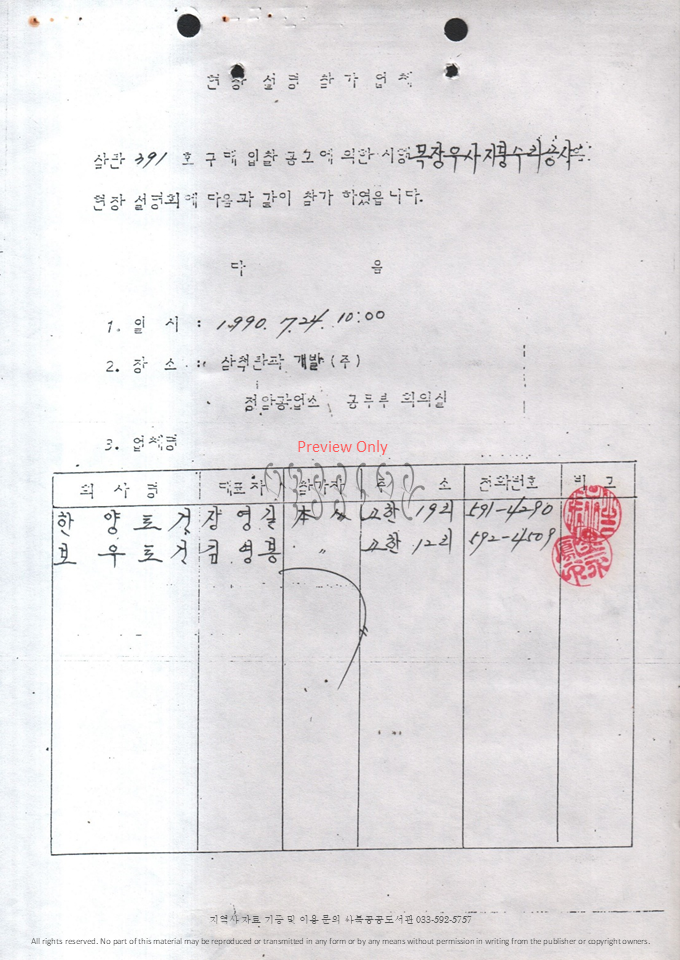 현장 설명 참가 업체
삼탄 391 호 구매 입찰 공고에 의한 시행 목장우사지붕수리공사를
현장 설명회에 다음과 같이 참가 하였읍니다.
다 음
1. 일 시 : 1990. 7.24. 10:00
2. 장 소 : 삼척탄좌 개발 (주)
정암광업소 공무부 회의실
3. 업체명
Preview Only
회 사 명 대표자 참가자 주 소 전화번호 비 고
한 양 토 건 장영길 本人 고한 19리 591-4290
보 우 토 건 김영봉 〃 고한 12리 592-4509
지역사 자료 기증 및 이용 문의 사북공공도서관 033-592-5757
All rights reserved. No part of this material may be reproduced or transmitted in any form or by any means without permission in writing from the publisher or copyright owners.